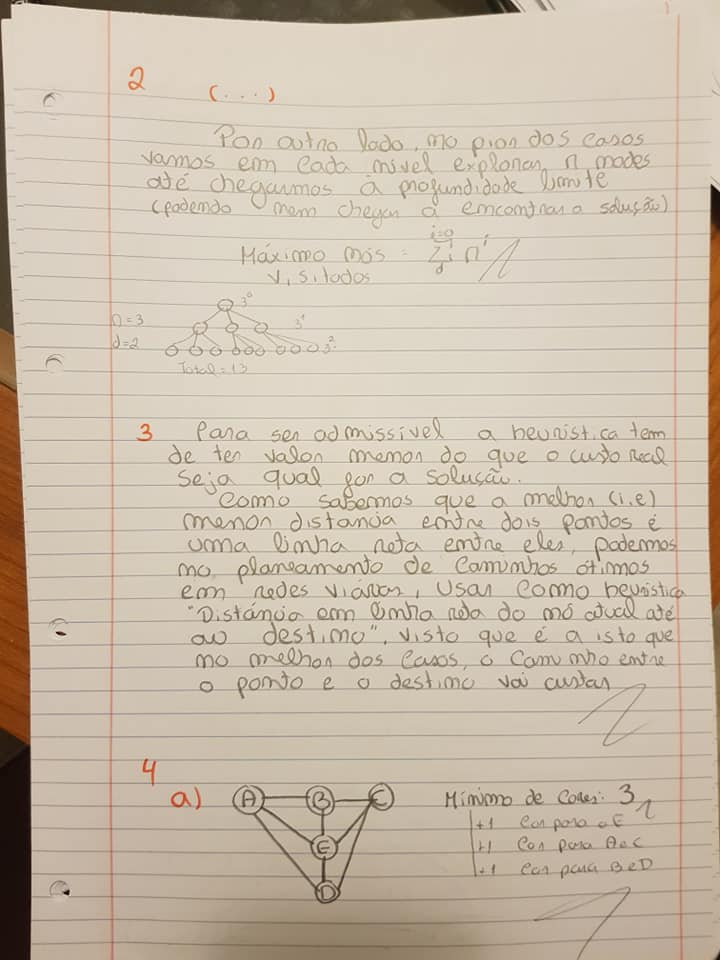 2 (...)
Por outro lado, no pior dos casos
vamos em cada nível explorar n nodes
até chegarmos à profundidade limite
(podendo nem chegar a encontrar a solução)
Máximo nós = i=0 Σ d nⁱ
visitados
3⁰
n=3
3¹
d=2
3²
Total = 13
3 Para ser admissível a heurística tem
de ter valor menor do que o custo real
seja qual for a solução.
Como sabemos que a melhor (i.e)
menor distancia entre dois pontos é
uma linha reta entre eles, podemos
no planeamento de Caminhos ótimos
em redes viárias, usar como heurística
"Distância em linha reta do nó atual até
ao destino", visto que é a isto que
no melhor dos casos, o Caminho entre
o ponto e o destino vai custar
4
a) A B C
E
D
Mínimo de Cores: 3
+1 Cor para o E
+1 Cor para A e C
+1 Cor para B e D